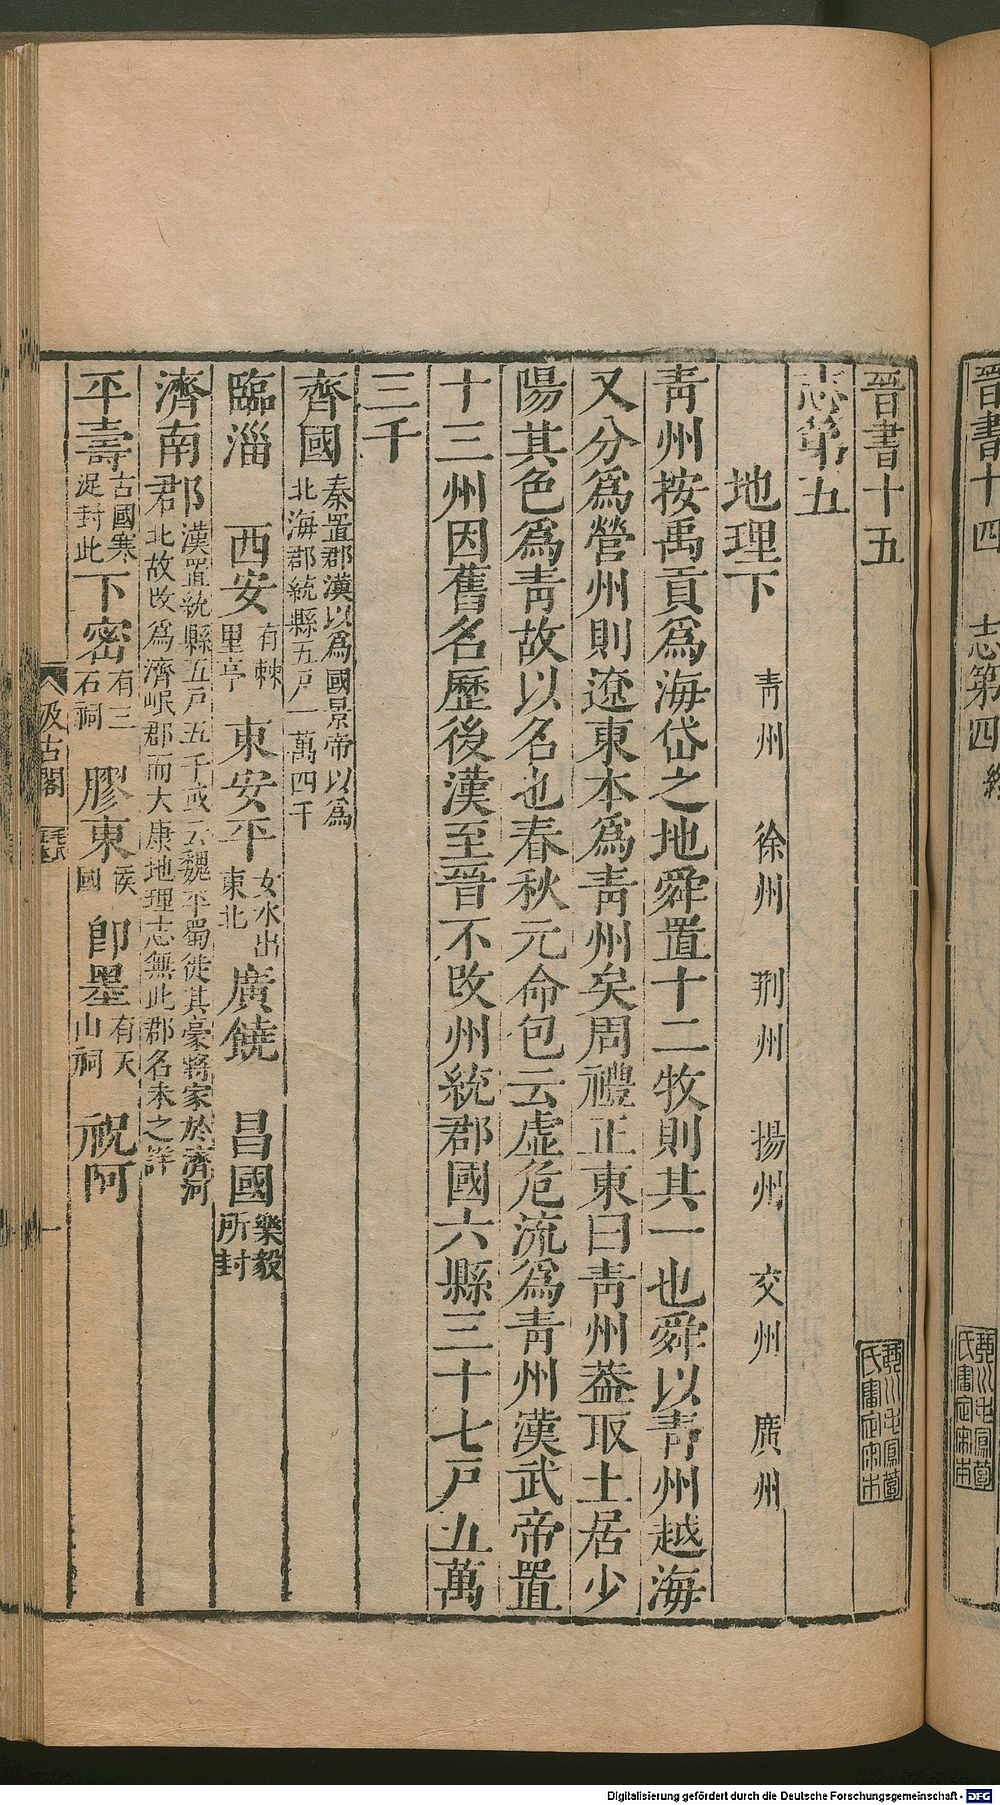 晉書十四　志第四終
晉書十五
志第五
地理下　青州　徐州　荆州　揚州　交州　廣州
青州按禹貢爲海岱之地舜置十二牧則其一也舜以青州越海
又分爲營州則遼東本爲青州矣周禮正東曰青州葢取土居少
陽其色爲青故以名也春秋元命包云虛危流爲青州漢武帝置
十三州因舊名歷後漢至晉不改州統郡國六縣三十七戶五萬
三千
齊國秦置郡漢以爲國景帝以爲北海郡統縣五戶一萬四千
臨淄　西安有棘里亭　東安平女水出東北　廣饒　昌國樂毅所封
濟南郡漢置統縣五戶五千或云魏平蜀徙其豪將家於濟河北故改爲濟岷郡而太康地理志無此郡名未之詳
平壽古國寒浞封此　下密有三石祠　膠東侯國　卽墨有天山祠　祝阿
汲古閣　毛氏正本
一
Digitalisierung gefördert durch die Deutsche Forschungsgemeinschaft - DFG